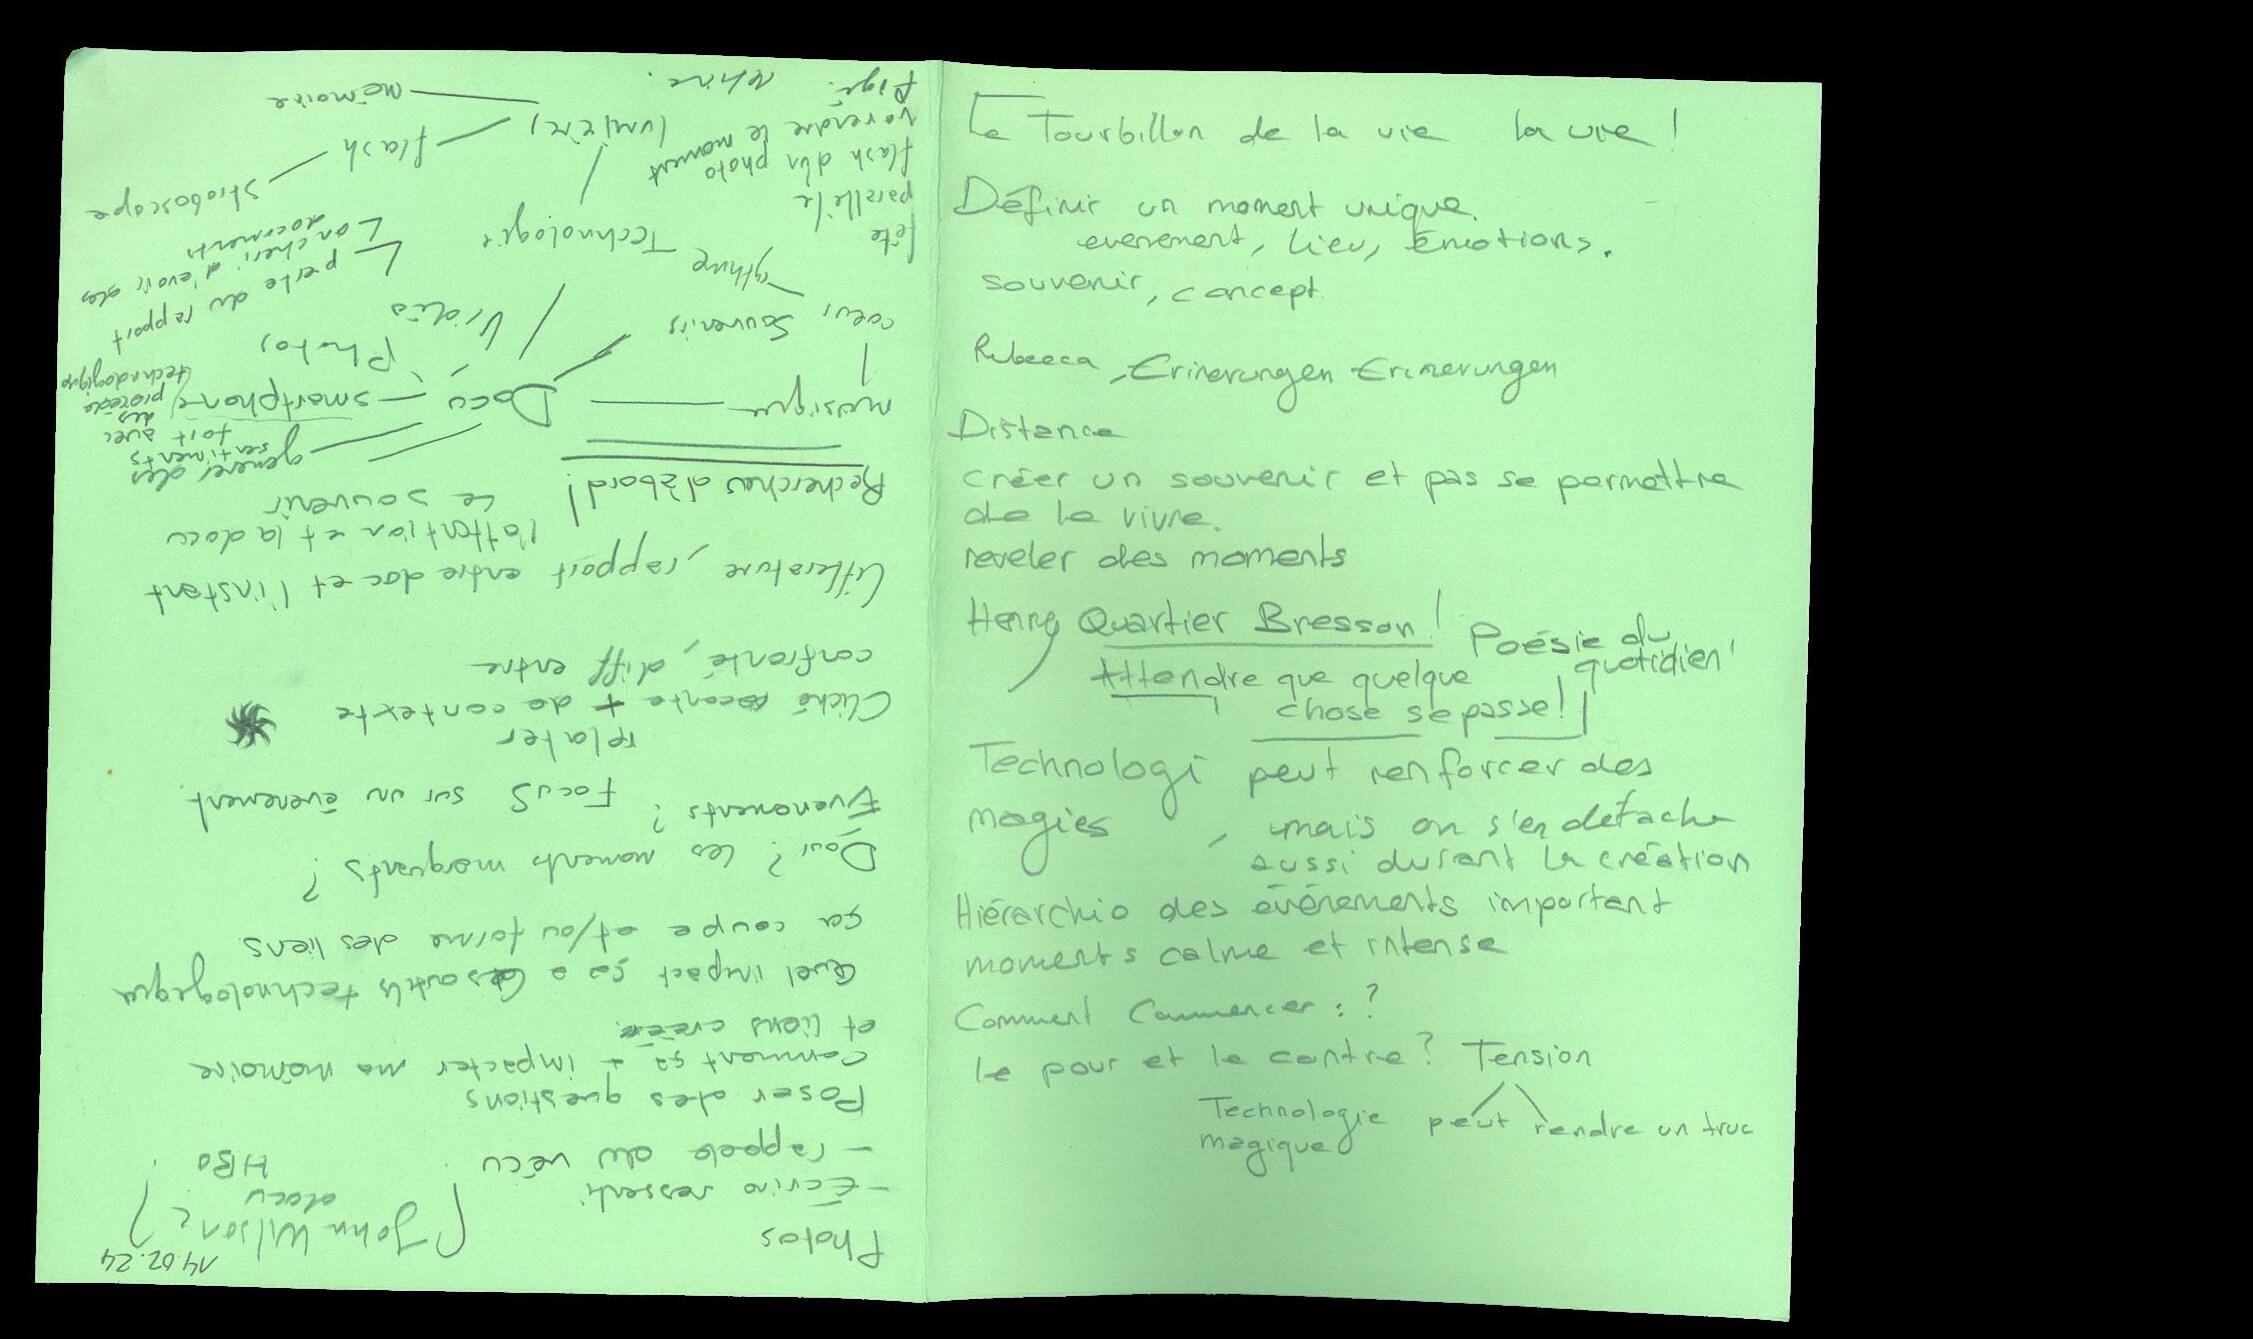 Le Tourbillon de la vie la vie !
Définir un moment unique.
evenement, lieu, émotions.
souvenir, concept.
Rebecca, Erinerungen Erinerungen
Distance
créer un souvenir et pas se permettre
de le vivre.
reveler des moments
Henry Quartier Bresson !
Poésie du
quotidien !
Attendre que quelque
chose se passe !
Technologi peut renforcer des
magies, mais on s'en détache
aussi durant la création
Hiérarchie des événements important
moments calme et intense
Comment Commencer : ?
le pour et le contre ? Tension
Technologie peut rendre un truc
magique
14.02.24
Photos
(John Wilson ?)
docu
HBO
- Écrire ressenti
- rappele du vécu
Poser des questions
Comment ça + impacter ma mémoire
et liens créée
Quel impact ça a les outils technologique
ça coupe et/ou forme des liens
Pour ? Les moments marquants ?
Evenements ? Focus sur un évenement
relater
Cliché raconte + de contexte
confronté, diff entre
Litterature, rapport entre doc et l'instant
l'attention et la docu
Le souvenir
Recherches d'abord !
generer des
sentiments
fort avec
des
procédé
technologique
musique
Docu
smartphone
coeur
Souvenirs
Vidéos
Photos
rythme
Technologie
perte du rapport
on cheri d'avoir des
documents
fête
parallèle
flash d'un photo
va rendre le moment
figé.
lumière,
flash
stroboscope
mémoire